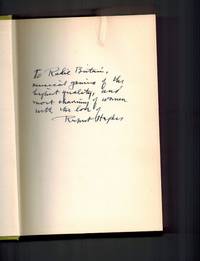 To Radie Britain,
musical genius of the
highest quality, and
most charming of women
with the love of
Rupert Hughes